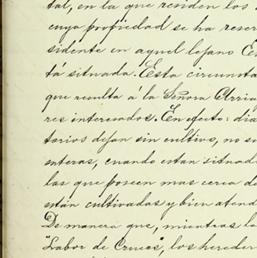 tal, en la que residen los
cuya propiedad se ha reser
sidente en aquel lejano Ce
tá situada. Esta circunsta
que resulta á la Señora Arri
res interesados. En efecto: dia
tarios dejan sin cultivo, no s
enteras, cuando están situad
las que poseen mas cerca d
están cultivadas y bien atend
De manera que, mientras l
"Labor de Cruces", los hereder